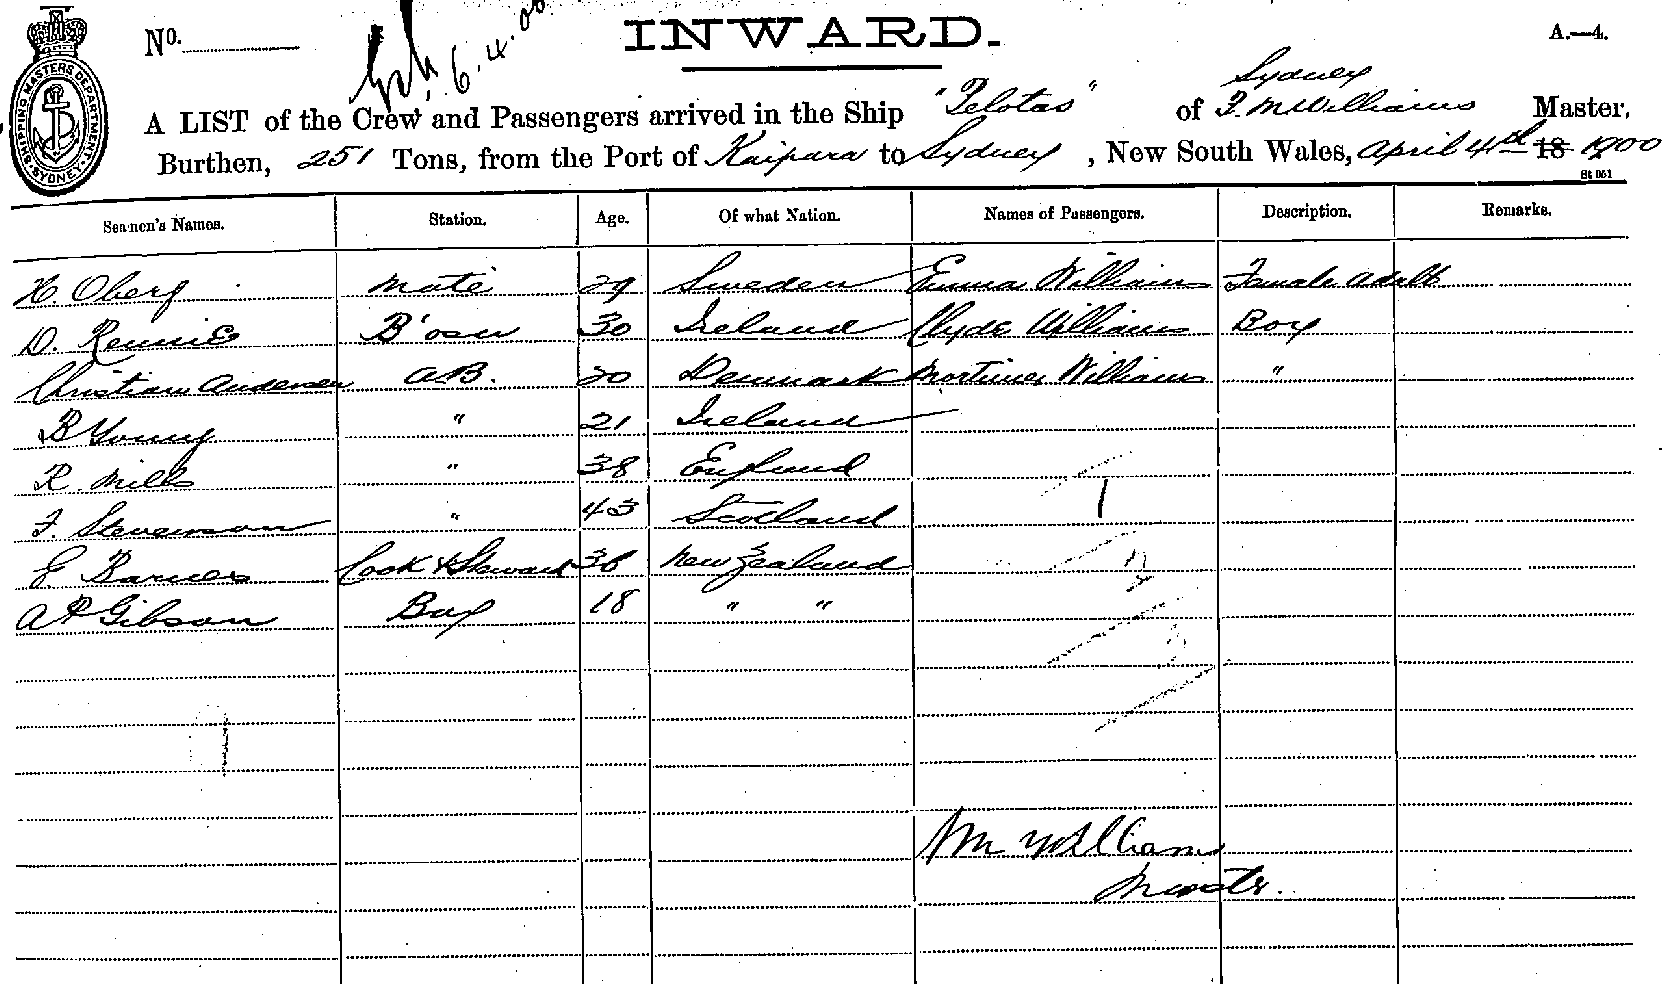 No. 6.4.00 INWARD. A.—4.
SHIPPING MASTERS DEPARTMENT. SYDNEY.
Sydney
A LIST of the Crew and Passengers arrived in the Ship "Pelotas" of F. McWilliams Master,
Burthen, 251 Tons, from the Port of Kaipara to Sydney, New South Wales, April 4th 18 1900
St 051
Seamen's Names. Station. Age. Of what Nation. Names of Passengers. Description. Remarks.
H Oberg Mate 29 Sweden Emma Williams Female Adult
D. Rennie B'osn 30 Ireland Clyde Williams Boy
Christian Andersen A.B. 20 Denmark Mortimer Williams "
B Young " 21 Ireland
R. Mills " 38 England
F. Stevenson " 43 Scotland
E Barnes Cook & Steward 36 New Zealand
A P Gibson Boy 18 " "
Williams
Master.